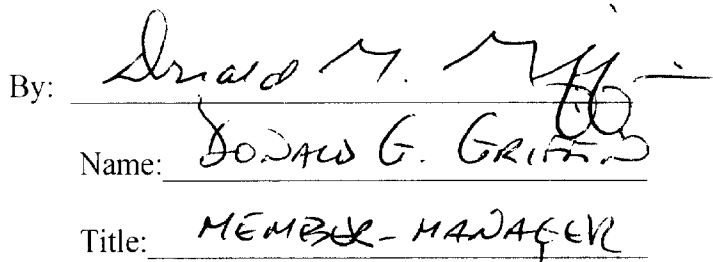 By: Donald G. Griffin
Name: DONALD G. GRIFFIN
Title: MEMBER-MANAGER